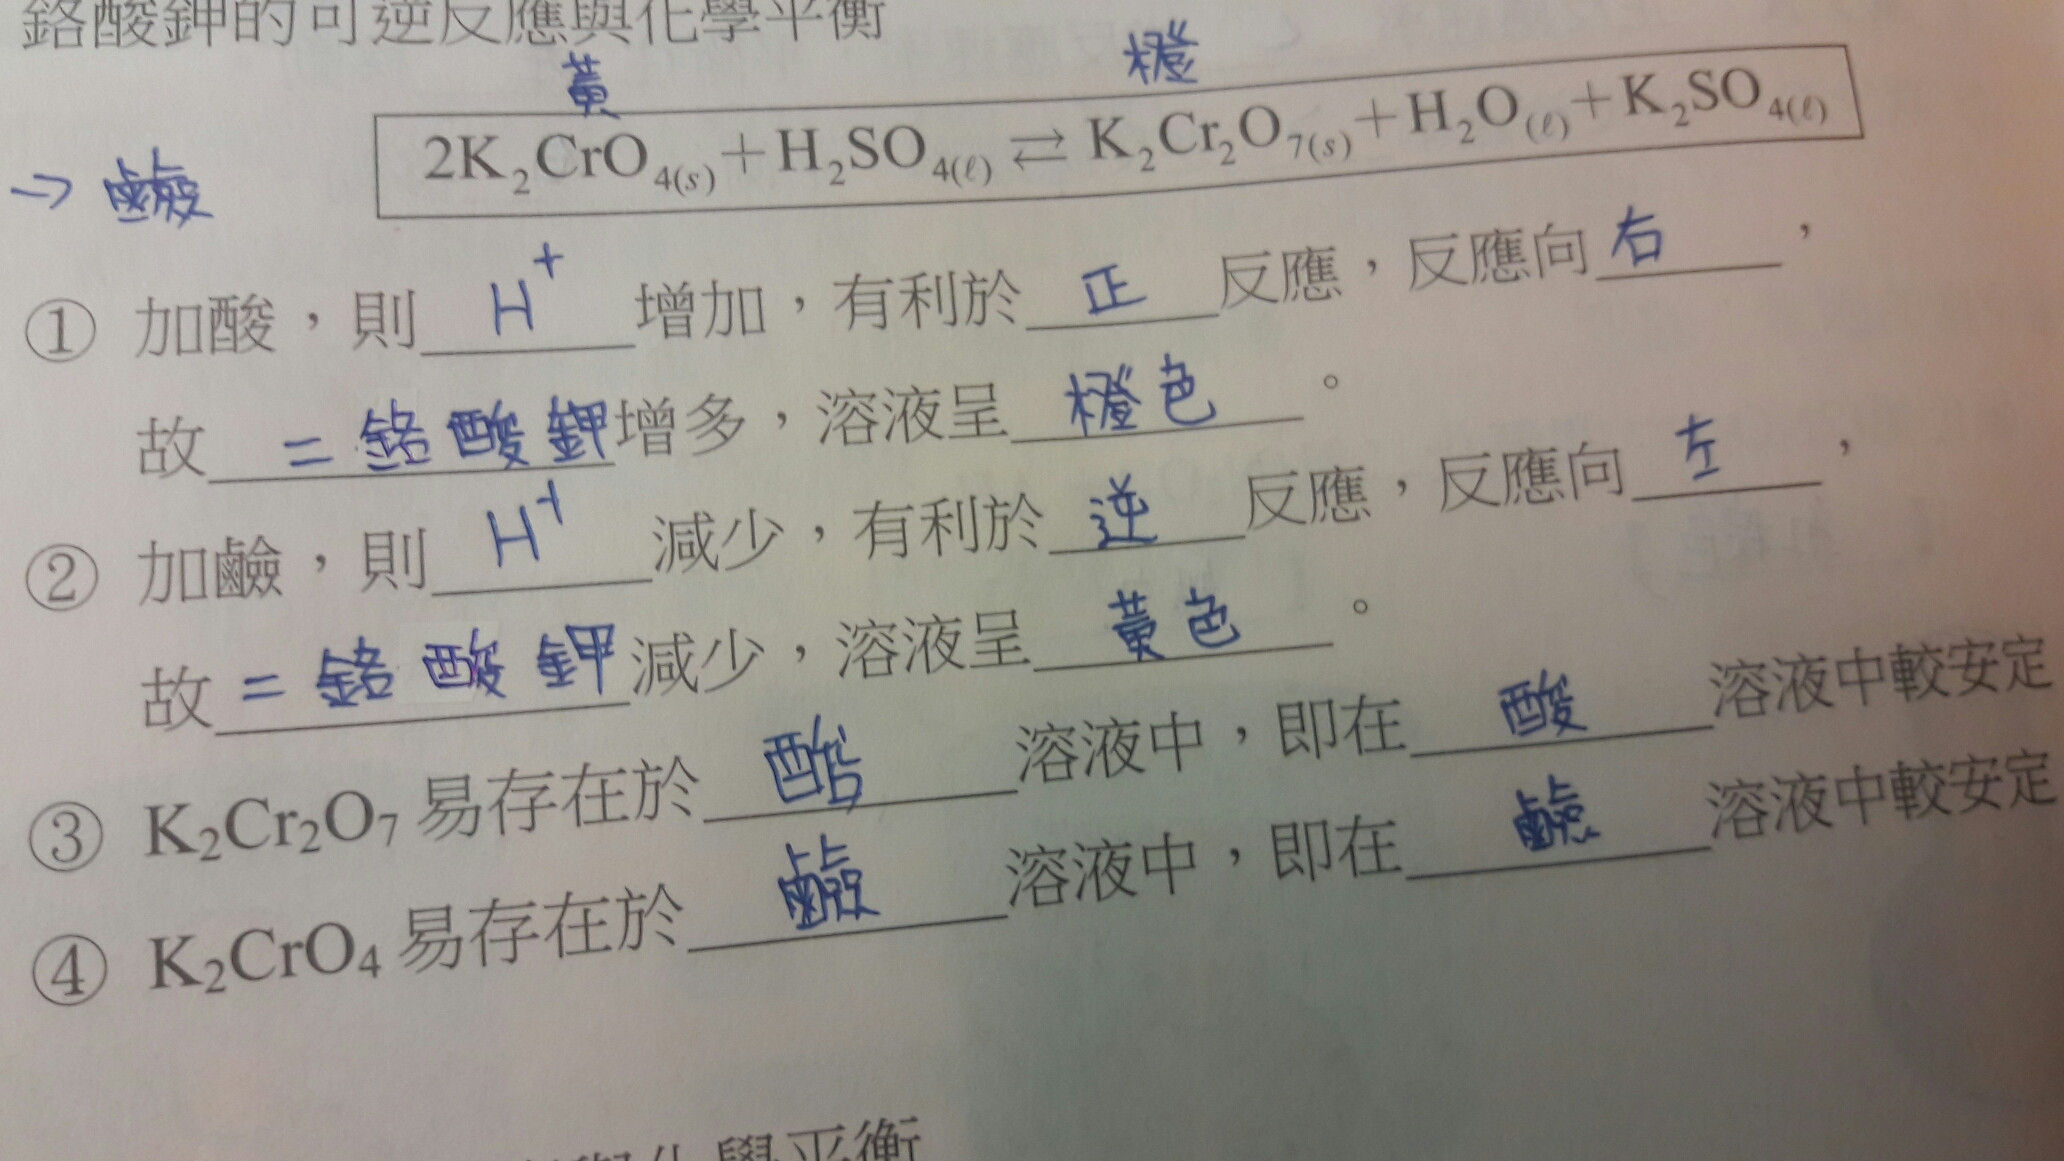 鉻酸鉀的可逆反應與化學平衡
黃 橙
2K₂CrO₄₍s₎+H₂SO₄₍ℓ₎⇄K₂Cr₂O₇₍s₎+H₂O₍ℓ₎+K₂SO₄₍ℓ₎
→ 鹼
① 加酸,則 H⁺ 增加,有利於 正 反應,反應向 右 ,
故 二鉻酸鉀 增多,溶液呈 橙色 。
② 加鹼,則 H⁺ 減少,有利於 逆 反應,反應向 左 ,
故 二鉻酸鉀 減少,溶液呈 黃色 。
③ K₂Cr₂O₇ 易存在於 酸 溶液中,即在 酸 溶液中較安定
④ K₂CrO₄ 易存在於 鹼 溶液中,即在 鹼 溶液中較安定
化學平衡